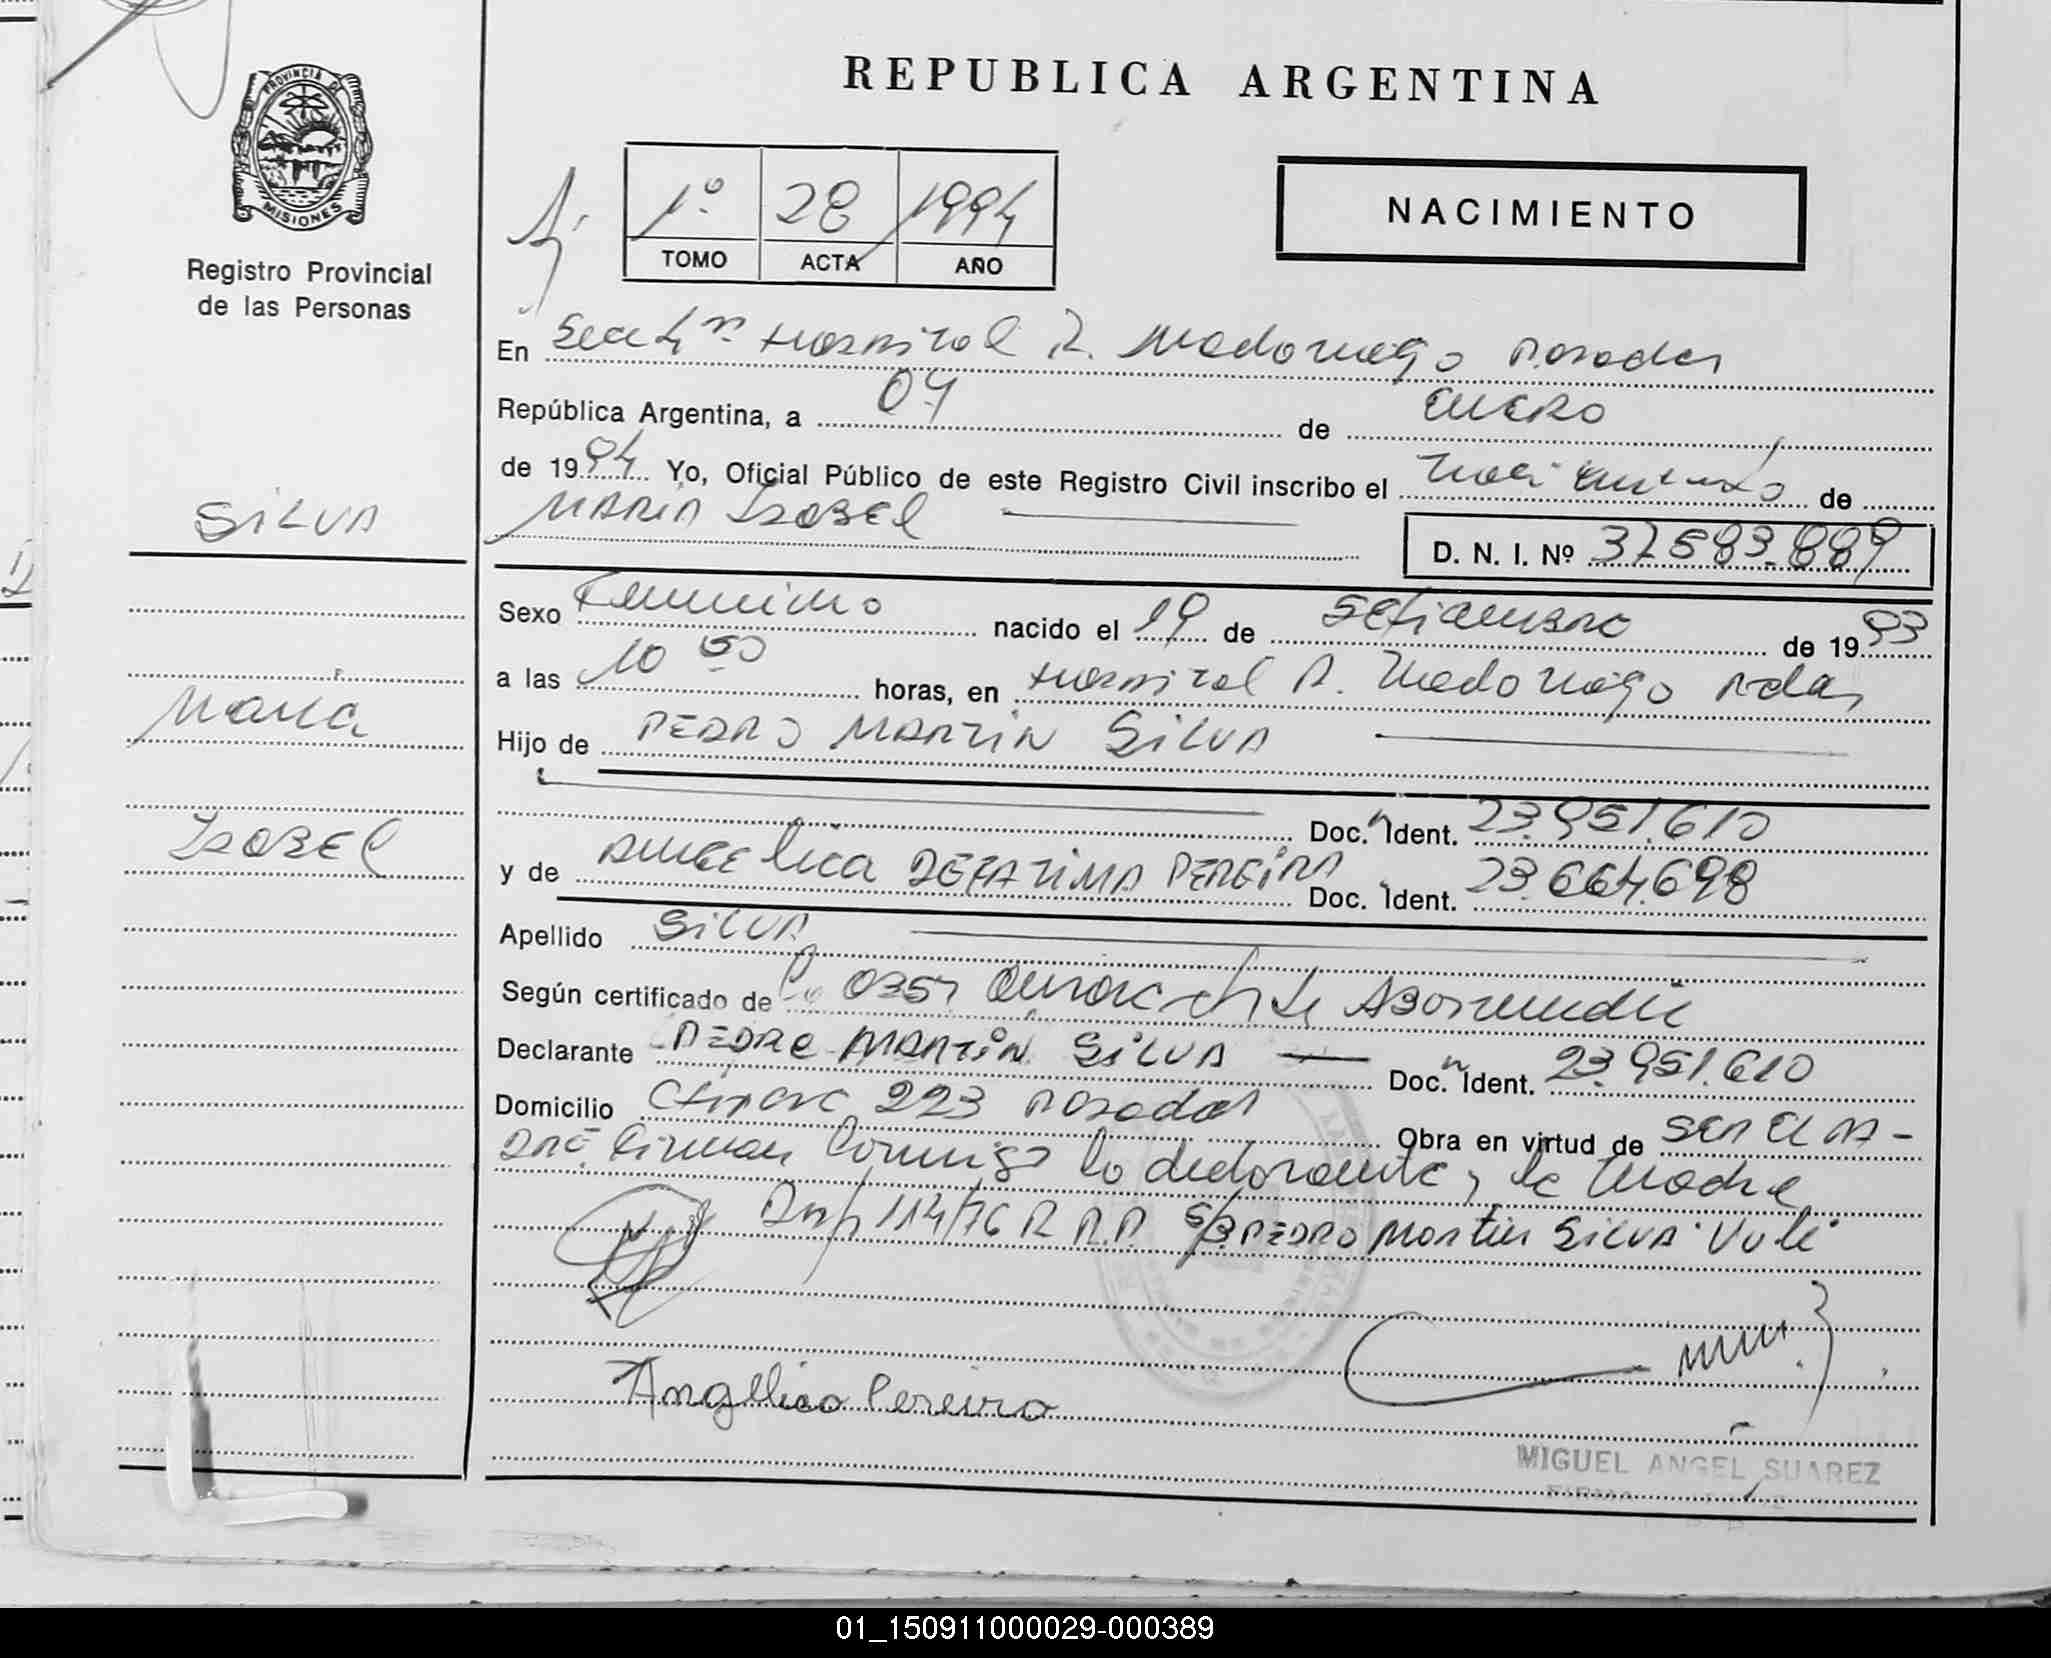 REPUBLICA ARGENTINA
PROVINCIA DE
MISIONES
Registro Provincial
de las Personas
1º 28 1994
TOMO ACTA AÑO
NACIMIENTO
En Hospital R. Madariaga Posadas
República Argentina, a 04 de Enero
de 1994 Yo, Oficial Público de este Registro Civil inscribo el nacimiento de
MARIA ISABEL
D. N. I. Nº 37.583.889
SILVA
Maria
ISABEL
Sexo Femenino nacido el 19 de Setiembre de 1993
a las 10 50 horas, en Hospital R. Madariaga Pdas
Hijo de PEDRO MARTIN SILVA
Doc. Ident. 23.951.610
y de Angelica DEFATIMA PEREIRA Doc. Ident. 23.664.698
Apellido SILVA
Según certificado de
Declarante PEDRO MARTIN SILVA Doc. Ident. 23.951.610
Domicilio 223 Posadas Obra en virtud de SER EL PA-
DRE Firman Conmigo la declarante y la Madre
Disp 114/76 R.P.P. S/B PEDRO Martin SILVA "Vale"
Angelica Pereira
MIGUEL ANGEL SUAREZ
01_150911000029-000389